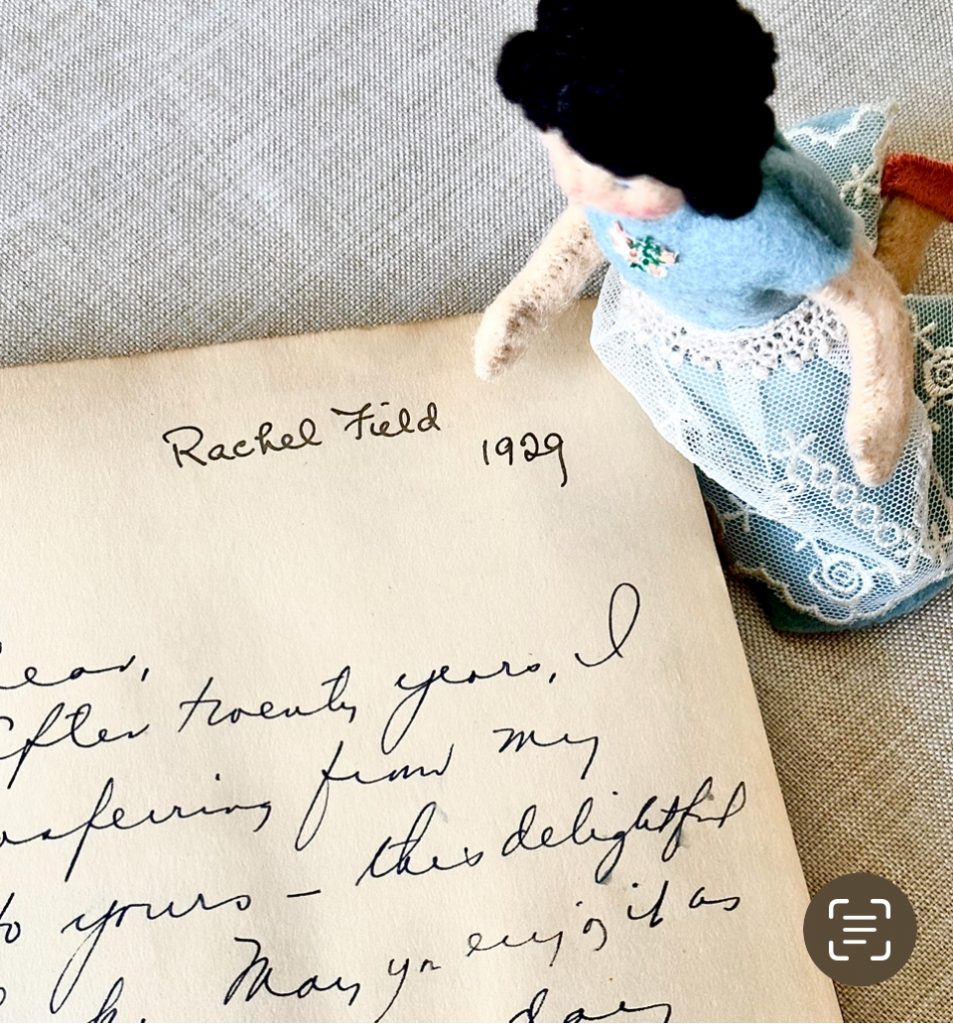 Rachel Field
1929
ear,
fter twenty years, I
nsferring from my
to yours – this delightful
May yu enjoy it as